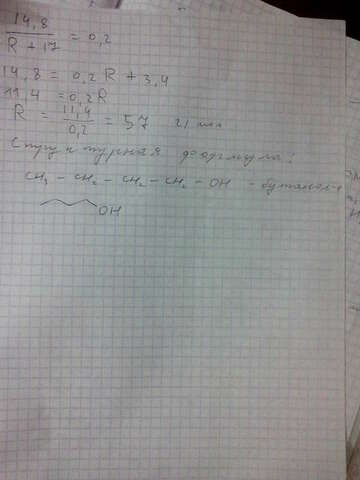 14,8 / (R + 17) = 0,2
14,8 = 0,2 R + 3,4
11,4 = 0,2R
R = 11,4 / 0,2 = 57 г/моль
Структурная формула:
CH3 – CH2 – CH2 – CH2 – OH – бутанол-1
OH